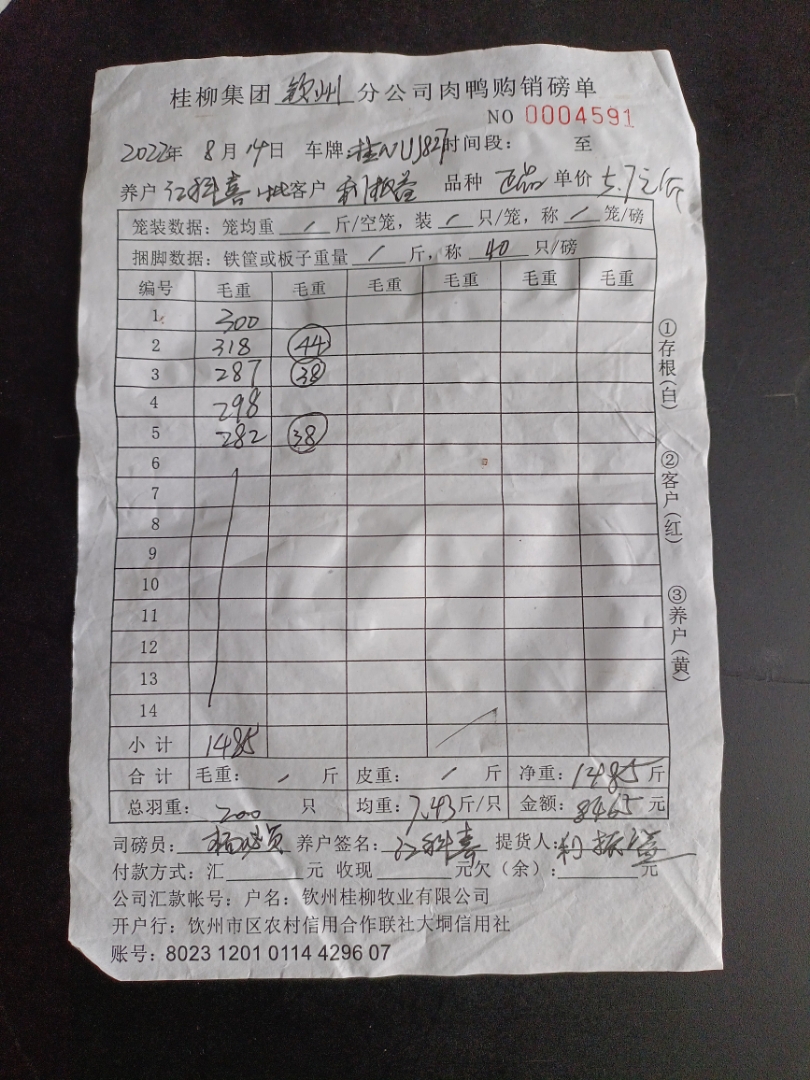 桂柳集团 钦州 分公司肉鸭购销磅单
NO 0004591
2022年 8月14日 车牌:桂NU3827时间段: 至
养户 江科喜 客户 利振萱 品种 正品 单价 5.7元/斤
笼装数据:笼均重 / 斤/空笼,装 / 只/笼,称 / 笼/磅
捆脚数据:铁筐或板子重量 / 斤,称 40 只/磅
编号 毛重 毛重 毛重 毛重 毛重 毛重
1 300
2 318 44
3 287 38
4 298
5 282 38
6
7
8
9
10
11
12
13
14
小计 1485
合计 毛重: / 斤 皮重: / 斤 净重:1485斤
总羽重: 200 只 均重:7.43斤/只 金额:8465元
司磅员: 养户签名:江科喜 提货人:利振萱
付款方式:汇 元 收现 元欠(余): 元
公司汇款帐号:户名:钦州桂柳牧业有限公司
开户行:钦州市区农村信用合作联社大垌信用社
账号:8023 1201 0114 4296 07
①存根(白)
②客户(红)
③养户(黄)